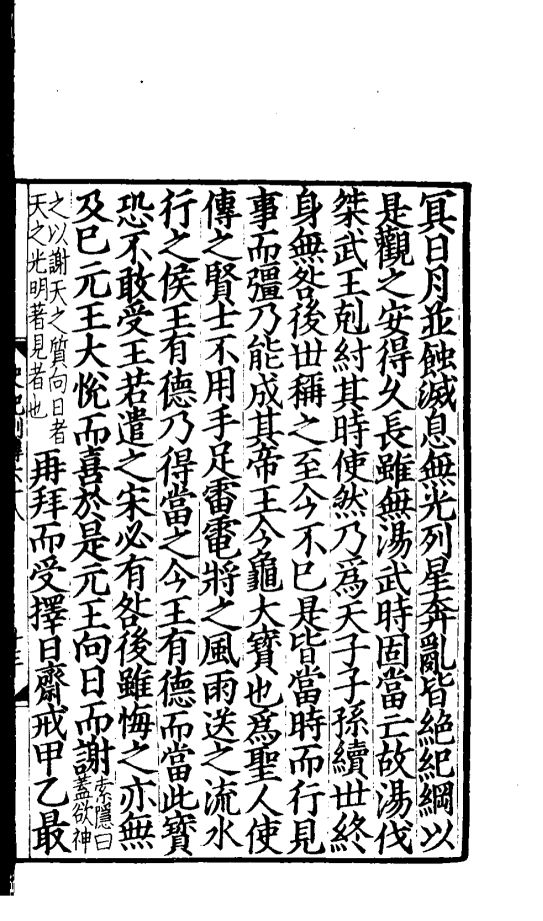 冥日月並蝕滅息無光列星奔亂皆絶紀綱以
是觀之安得久長雖無湯武時固當亡故湯伐
桀武王剋紂其時使然乃爲天子子孫續世終
身無咎後世稱之至今不已是皆當時而行見
事而彊乃能成其帝王今龜大寶也爲聖人使
傳之賢士不用手足雷電將之風雨送之流水
行之侯王有德乃得當之今王有德而當此寶
恐不敢受王若遣之宋必有咎後雖悔之亦無
及已元王大恱而喜於是元王向日而謝索隱曰蓋欲神
之以謝天之質向日者天之光明著見者也再拜而受擇日齋戒甲乙最
史記列傳六十八
十三